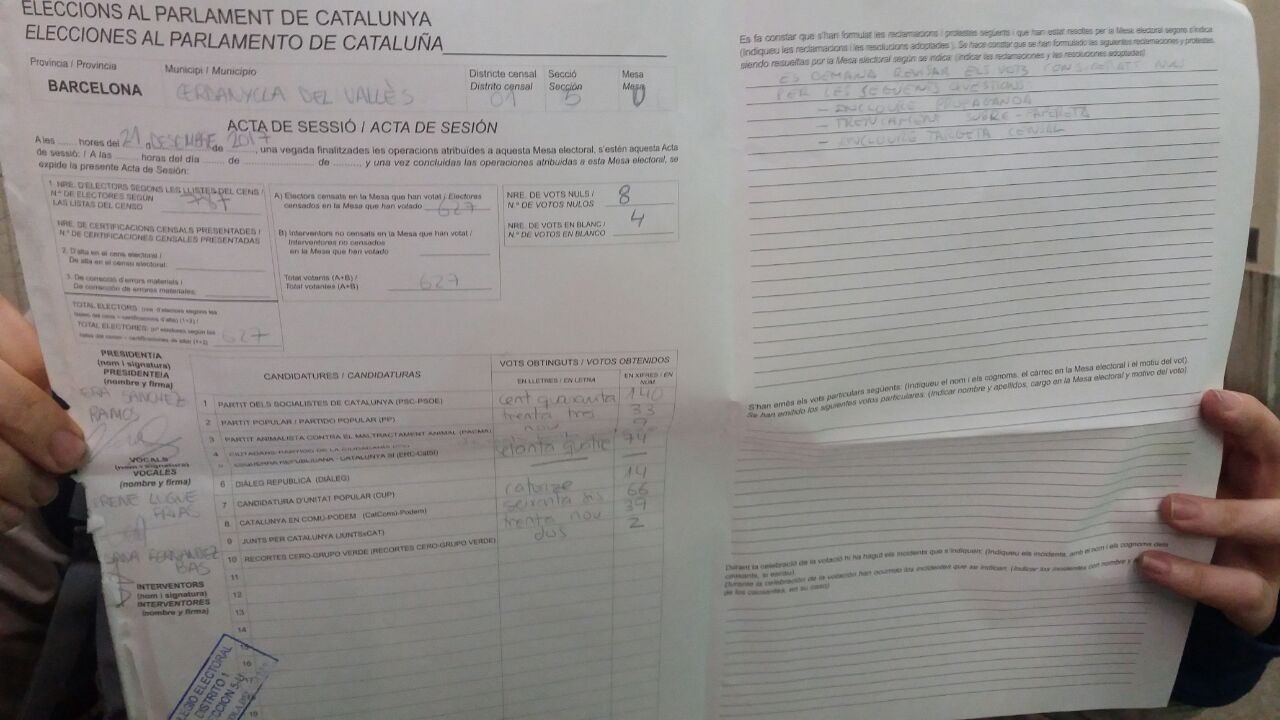 ELECCIONS AL PARLAMENT DE CATALUNYA
ELECCIONES AL PARLAMENTO DE CATALUÑA
Provincia / Provincia
BARCELONA
Municipi / Municipio
CERDANYOLA DEL VALLÈS
Districte censal
Distrito censal
01
Secció
Sección
5
Mesa
Mesa
U
ACTA DE SESSIÓ / ACTA DE SESIÓN
A les ...... hores del 21 de DESEMBRE de 2017, una vegada finalitzades les operacions atribuïdes a aquesta Mesa electoral, s'estén aquesta Acta
de sessió: / A las ......... horas del día ......... de ......... de .........., y una vez concluidas las operaciones atribuidas a esta Mesa electoral, se
expide la presente Acta de Sesión:
1. NRE. D'ELECTORS SEGONS LES LLISTES DEL CENS /
N.º DE ELECTORES SEGÚN
LAS LISTAS DEL CENSO
787
NRE. DE CERTIFICACIONS CENSALS PRESENTADES /
N.º DE CERTIFICACIONES CENSALES PRESENTADAS
2. D'alta en el cens electoral /
De alta en el censo electoral:
3. De correcció d'errors materials /
De corrección de errores materiales:
TOTAL ELECTORES:
627
A) Electors censats en la Mesa que han votat / Electores
censados en la Mesa que han votado
627
B) Interventors no censats en la Mesa que han votat /
Interventores no censados
en la Mesa que han votado
Total votants (A+B) /
Total votantes (A+B)
627
NRE. DE VOTS NULS /
N.º DE VOTOS NULOS
8
NRE. DE VOTS EN BLANC /
N.º DE VOTOS EN BLANCO
4
PRESIDENT/A
(nom i signatura)
PRESIDENTE/A
(nombre y firma)
SANCHEZ
RAMOS
VOCALS
(nom i signatura)
VOCALES
(nombre y firma)
IRENE LUQUE
FRIAS
FERNANDEZ
BAS
INTERVENTORS
(nom i signatura)
INTERVENTORES
(nombre y firma)
CANDIDATURES / CANDIDATURAS
VOTS OBTINGUTS / VOTOS OBTENIDOS
EN LLETRES / EN LETRA
EN XIFRES / EN NÚM
1 PARTIT DELS SOCIALISTES DE CATALUNYA (PSC-PSOE) cent quaranta 140
2 PARTIT POPULAR / PARTIDO POPULAR (PP) trenta tres 33
3 PARTIT ANIMALISTA CONTRA EL MALTRACTAMENT ANIMAL (PACMA) nou 9
4 CIUTADANS-PARTIDO DE LA CIUDADANÍA
5 ESQUERRA REPUBLICANA - CATALUNYA SÍ (ERC-CatSí) setanta quatre 74
6 DIÀLEG REPUBLICÀ (DIÀLEG)
7 CANDIDATURA D'UNITAT POPULAR (CUP) catorze 14
8 CATALUNYA EN COMÚ-PODEM (CatComú-Podem) seixanta sis 66
9 JUNTS PER CATALUNYA (JUNTSxCAT) trenta nou 39
10 RECORTES CERO-GRUPO VERDE (RECORTES CERO-GRUPO VERDE) dos 2
11
12
13
14
16
COLEGIO ELECTORAL
DISTRITO 1
SECCION 5-U
Es fa constar que s'han formulat les reclamacions i protestes següents i que han estat resoltes per la Mesa electoral segons s'indica:
(Indiqueu les reclamacions i les resolucions adoptades). Se hace constar que se han formulado las siguientes reclamaciones y protestas,
siendo resueltas por la Mesa electoral según se indica: (indicar las reclamaciones y las resoluciones adoptadas)
ES DEMANA REVISAR ELS VOTS CONSIDERATS NULS
PER LES SEGÜENTS QÜESTIONS:
- ENCLOURE PROPAGANDA
- TRENCAMENT SOBRE-PAPERETA
- ENCLOURE TARGETA CENSAL
S'han emès els vots particulars següents: (Indiqueu el nom i els cognoms, el càrrec en la Mesa electoral i el motiu del vot).
Se han emitido los siguientes votos particulares: (Indicar nombre y apellidos, cargo en la Mesa electoral y motivo del voto).
Durant la celebració de la votació hi ha hagut els incidents que s'indiquen: (Indiqueu els incidents, amb el nom i els cognoms dels
causants, si escau).
Durante la celebración de la votación han ocurrido los incidentes que se indican: (Indicar los incidentes con nombre y
de los causantes, en su caso)